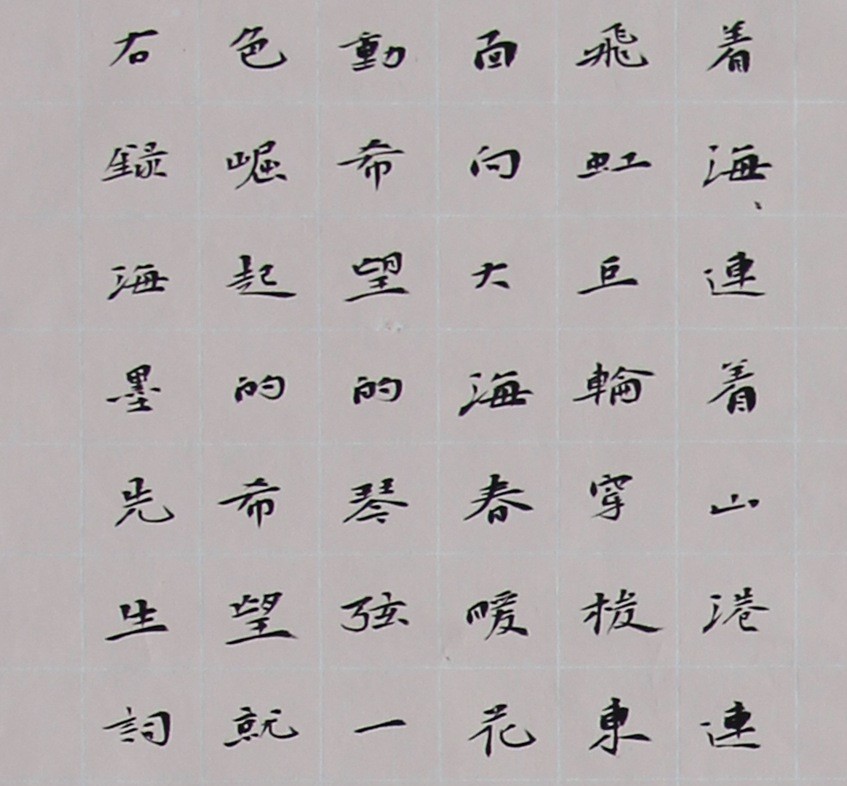 着海、連着山港連
飛虹巨輪穿梭東
面向大海春暖花
動希望的琴弦一
色崛起的希望就
右録海墨先生詞